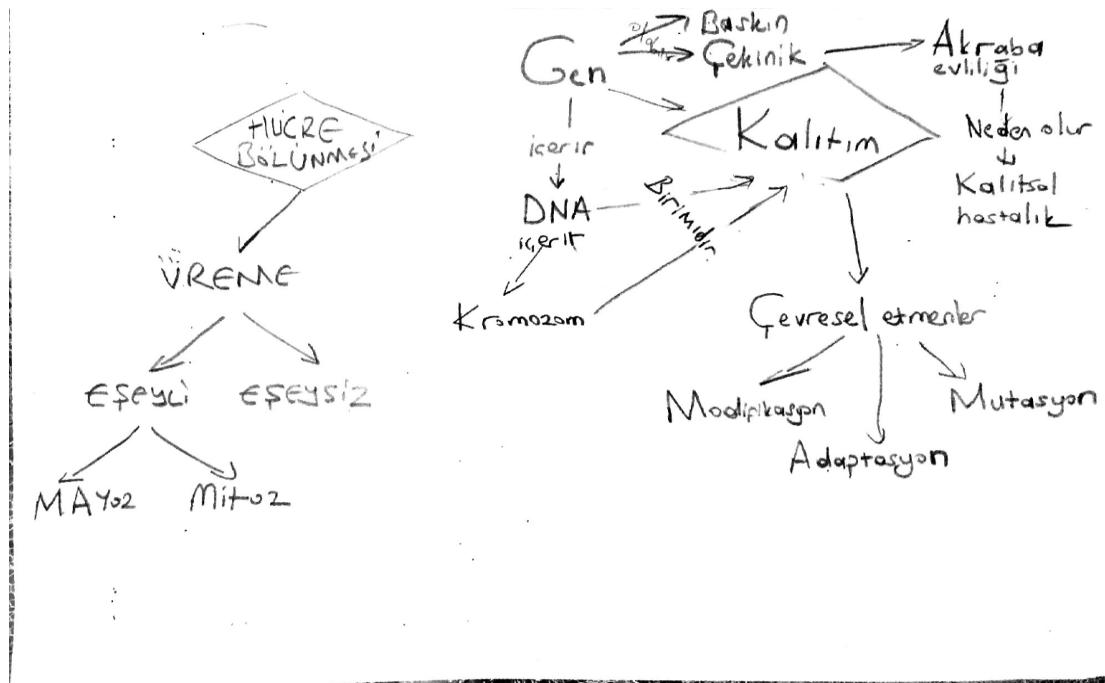 HÜCRE
BÖLÜNMESİ
ÜREME
EŞEYLİ
EŞEYSİZ
MAYOZ
MİTOZ
Gen
Baskın
Çekinik
Akraba
evliliği
Neden olur
Kalıtsal
hastalık
Kalıtım
içerir
DNA
içerir
Birimidir
Kromozom
Çevresel etmenler
Modifikasyon
Adaptasyon
Mutasyon